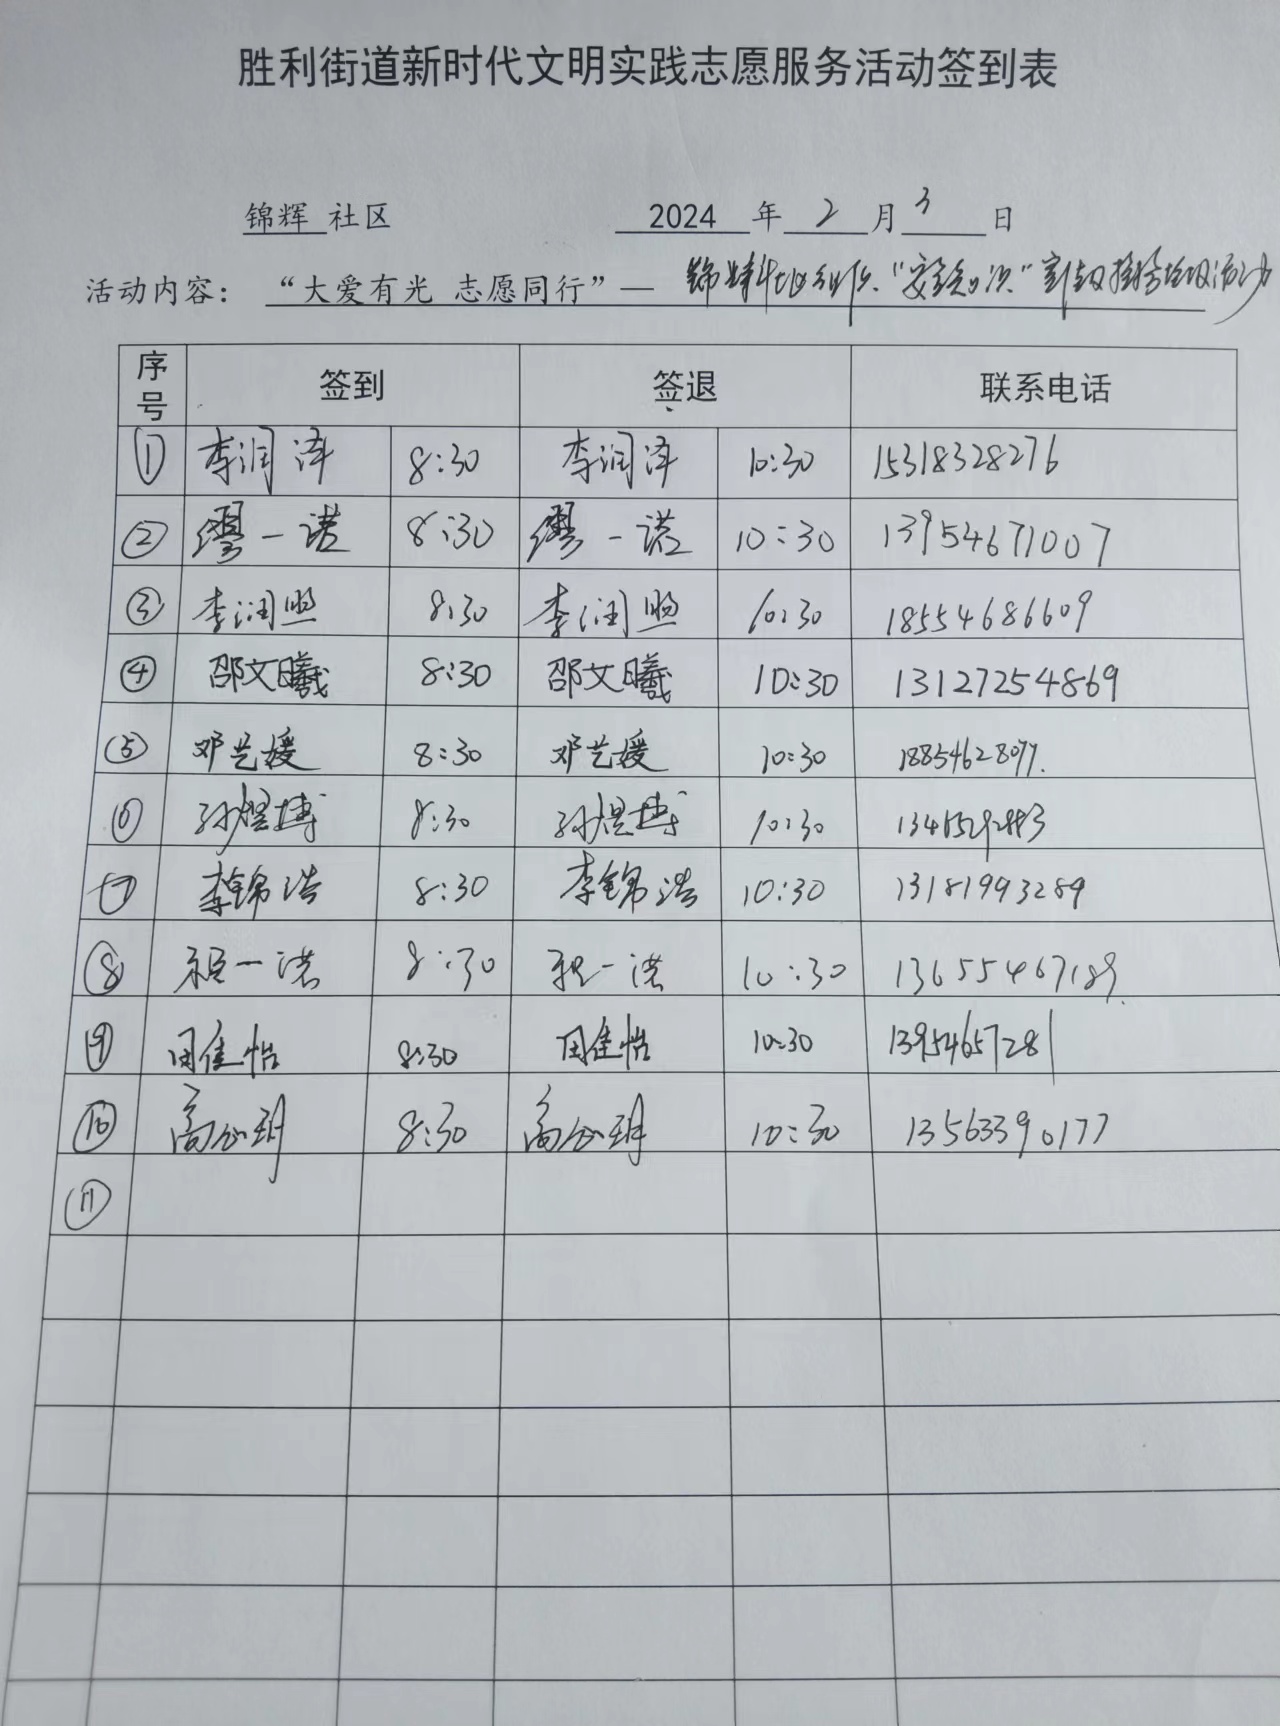 胜利街道新时代文明实践志愿服务活动签到表
锦辉 社区 2024 年 2 月 3 日
活动内容： “大爱有光 志愿同行”—
序号 签到 签退 联系电话
① 李润泽 8:30 李润泽 10:30 15318328276
② 缪一诺 8:30 缪一诺 10:30 13954671007
③ 李润熙 8:30 李润熙 10:30 18554686609
④ 邵文曦 8:30 邵文曦 10:30 13127254869
⑤ 邓艺媛 8:30 邓艺媛 10:30
⑥ 孙煜博 8:30 孙煜博 10:30
⑦ 李锦浩 8:30 李锦浩 10:30 13181993289
⑧ 程一诺 8:30 程一诺 10:30 13655467189.
⑨ 田佳怡 8:30 田佳怡 10:30 13954657281
⑩ 8:30 10:30 13563390177
⑪